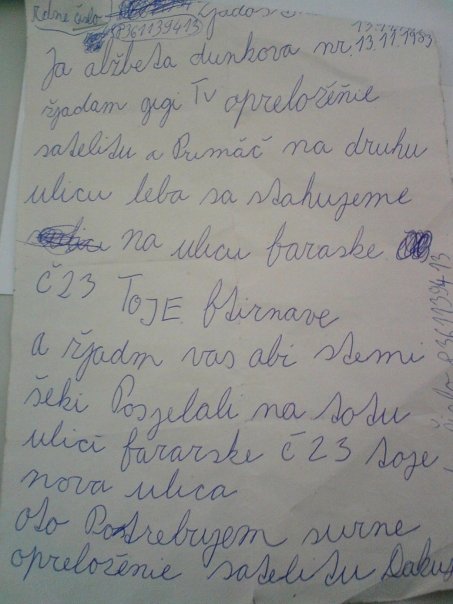 Rodne čislo
8361139413
Ja alžbeta dunkova nr. 13.11.1983
žjadam gigi Tv opreložéňie
satelitu a Primáč na druhu
ulicu leba sa stahujeme
na ulicu faraske
č23 TOJE ftirnave
a žjadm vas abi stemi
šeki Posjelali na totu
ulici fararske č23 toje
nova ulica
oto Potrebujem surne
opreloženie satelitu Dakuj
8361139413